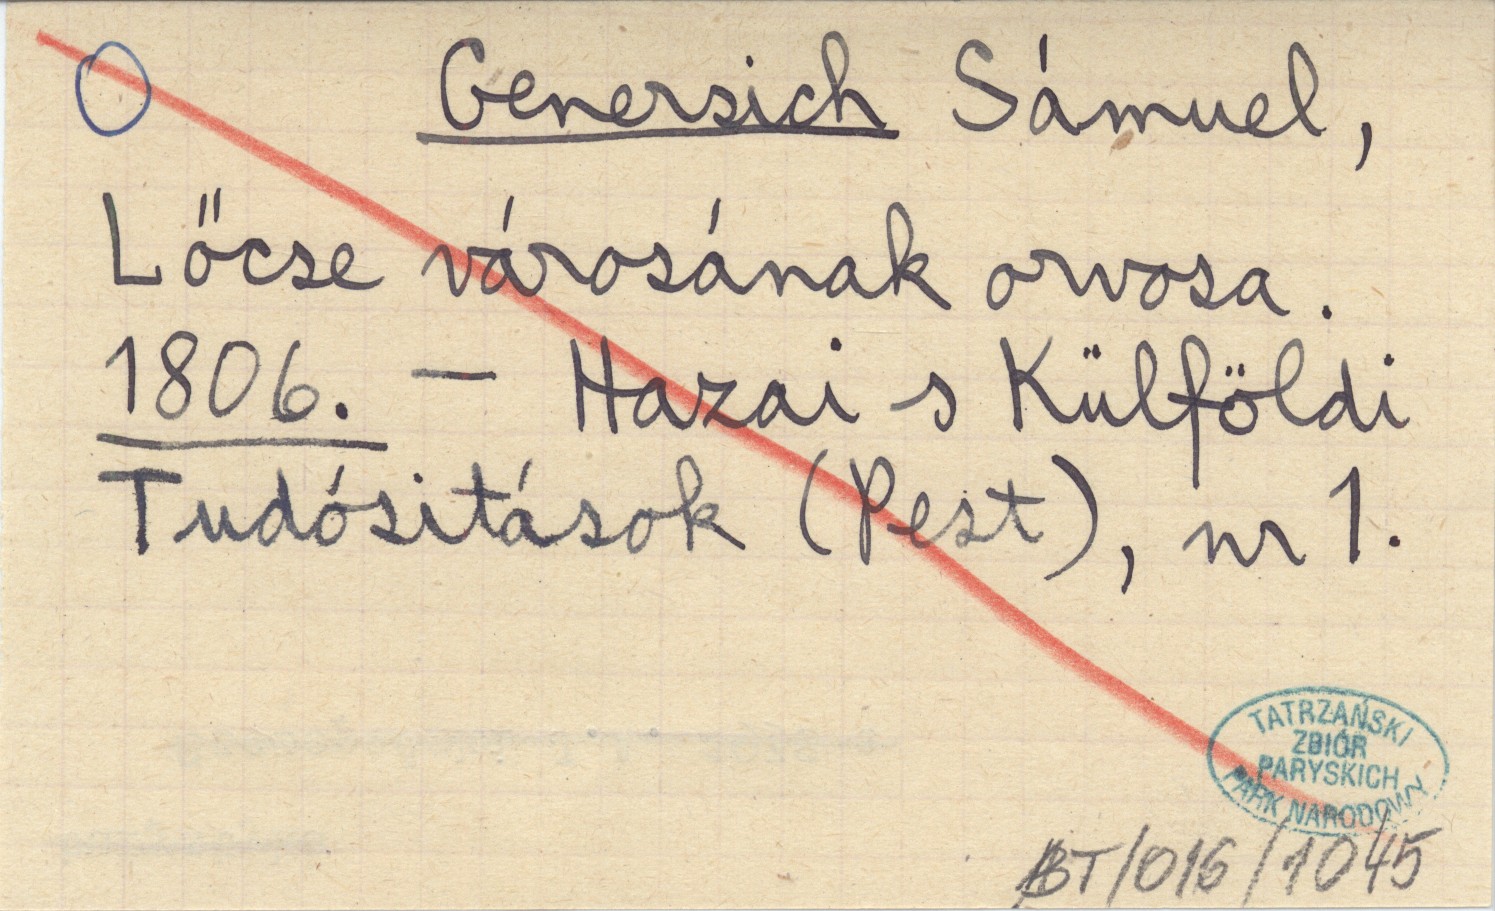 Genersich Sámuel,
Lőcse városának orvosa.
1806. — Hazai s Külföldi
Tudósitások (Pest), nr 1.
TATRZAŃSKI
ZBIÓR
PARYSKICH
PARK NARODOWY
BT/016/1045